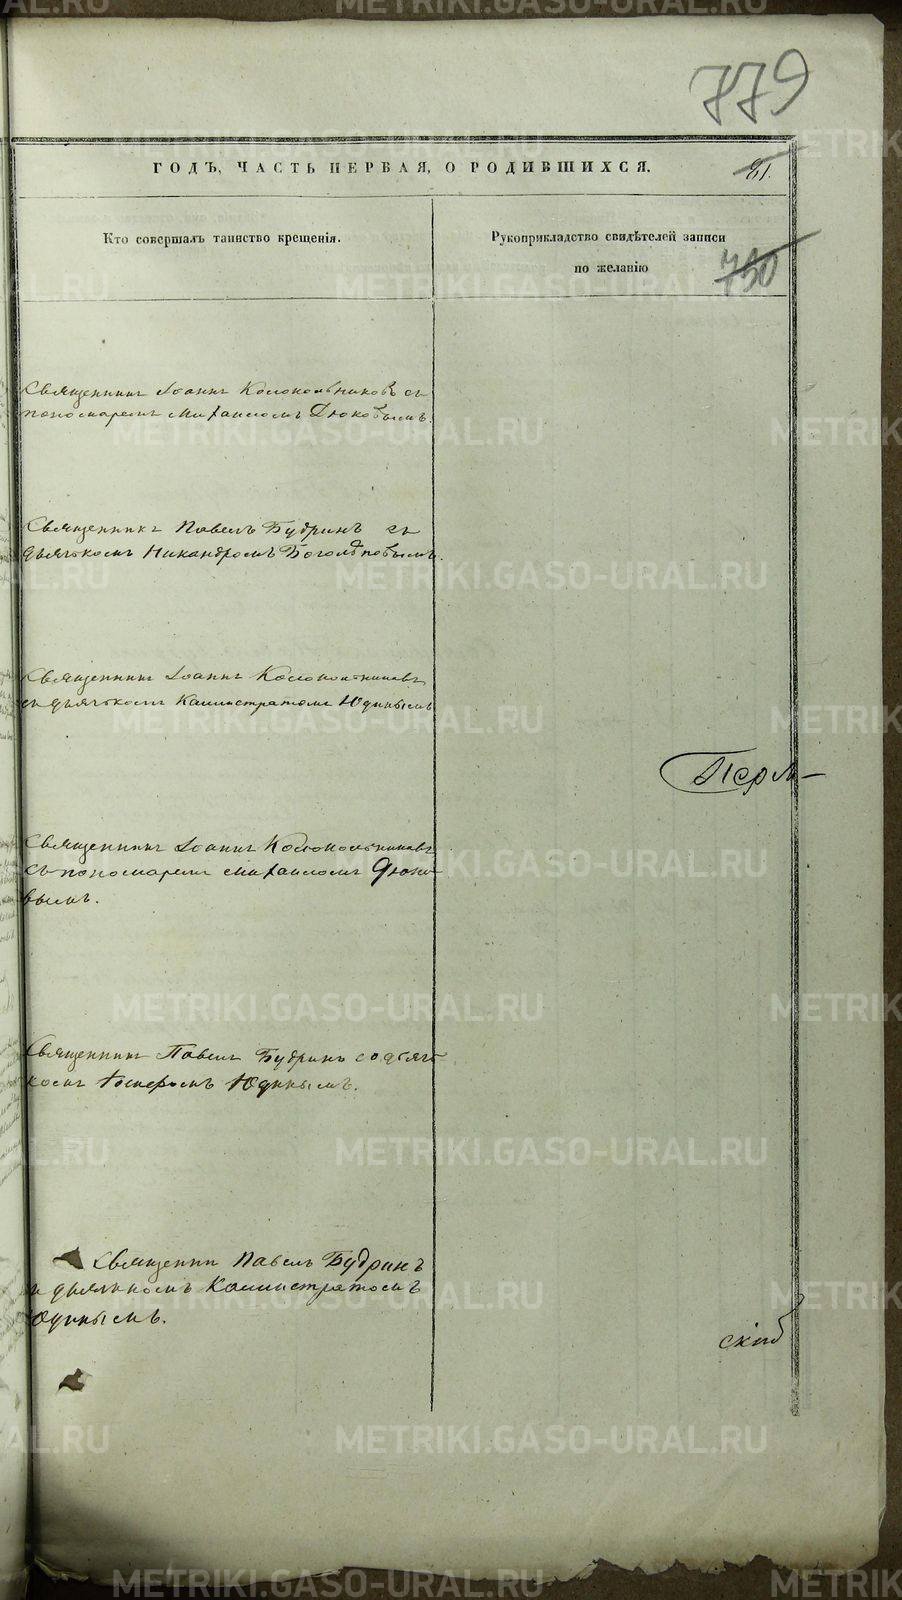 779
ГОДЪ, ЧАСТЬ ПЕРВАЯ, О РОДИВШИХСЯ.
81.
Кто совершалъ таинство крещенія.
Рукоприкладство свидѣтелей записи
по желанію
730
Священникъ Іоаннъ Колокольниковъ съ
пономаремъ Михаиломъ Дюковымъ.
Священникъ Павелъ Будринъ съ
дьячкомъ Никандромъ Боголѣповымъ.
Священникъ Іоаннъ Колокольниковъ
съ дьячкомъ Каллистратомъ Юдинымъ
Перм-
Священникъ Іоаннъ Колокольниковъ
съ пономаремъ Михаиломъ Дюко-
вымъ.
Священникъ Павелъ Будринъ со дьяч-
комъ Юдинымъ.
Священникъ Павелъ Будринъ
дьячкомъ Каллистратомъ
Юдинымъ.
ской
METRIKI.GASO-URAL.RU